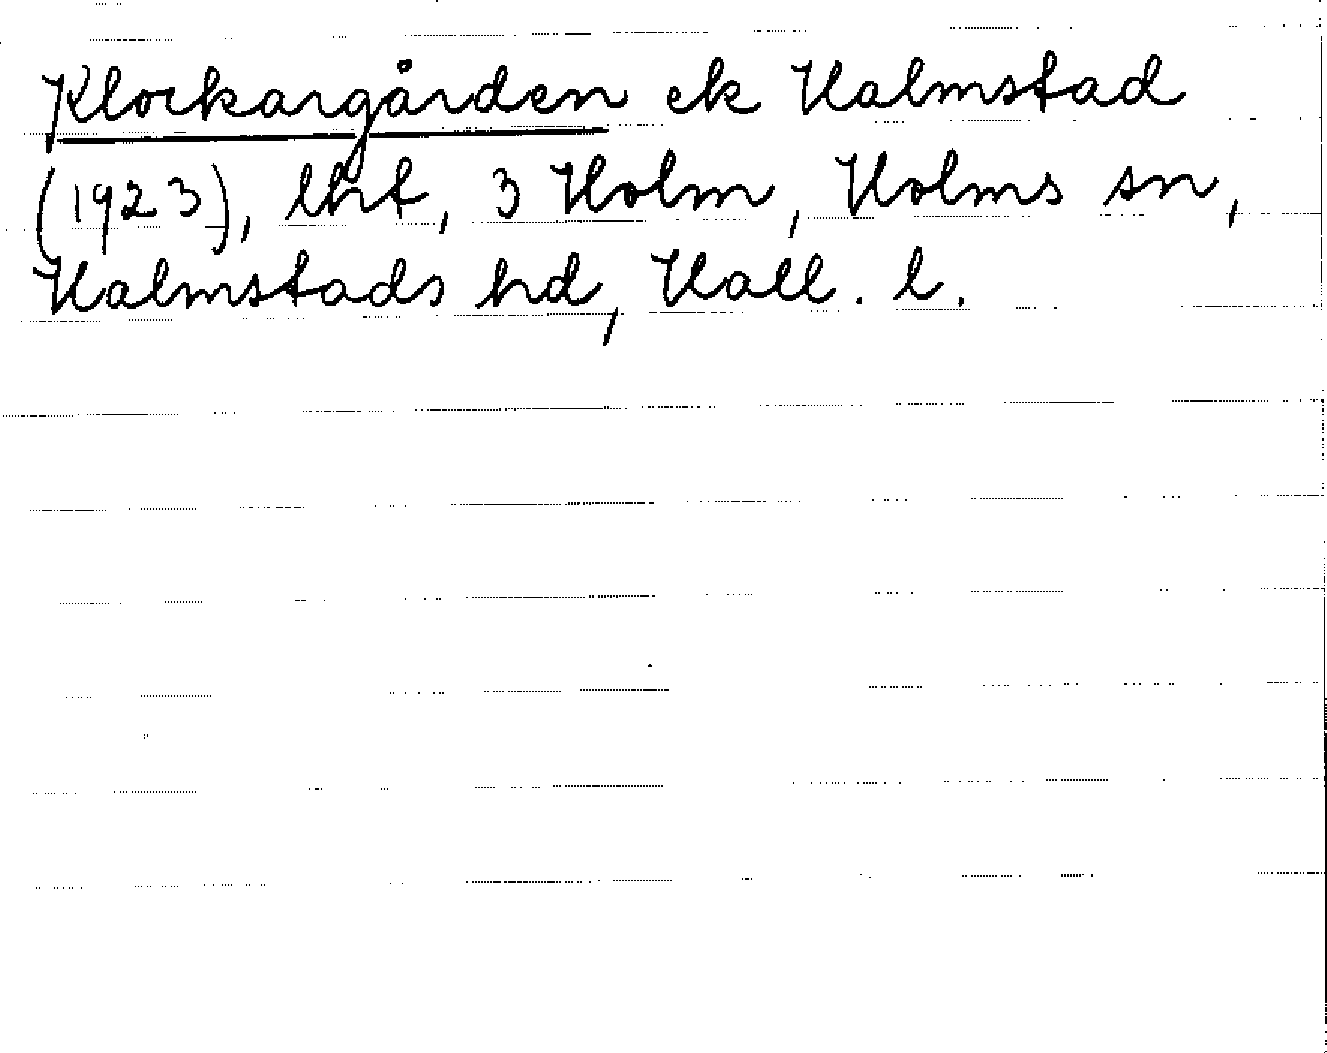 Klockargården ek Halmstad
(1923), lht, 3 Holm, Holms sn,
Halmstads hd, Hall. l.